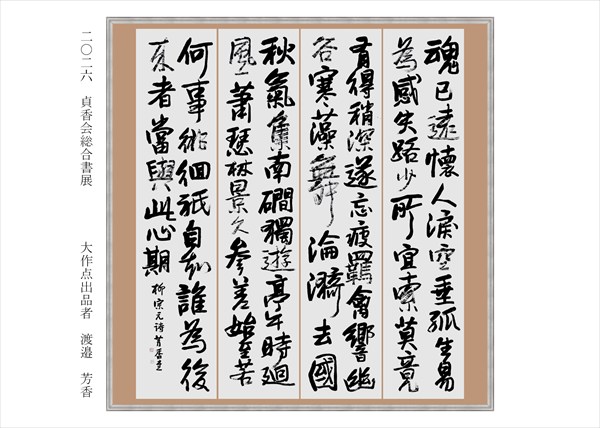 魂已遠懷人淚空垂孤生易
為感失路少所宜索莫竟
有得稍深遂忘疲羈禽響幽
谷寒藻舞淪漪去國
秋氣集南磵獨遊亭午時廻
風一蕭瑟林景久參差始至若
何事徘徊祇自知誰為後
来者當與此心期 柳宗元詩 芳香
二〇二六 貞香会総合書展 大作点出品者 渡邉 芳香